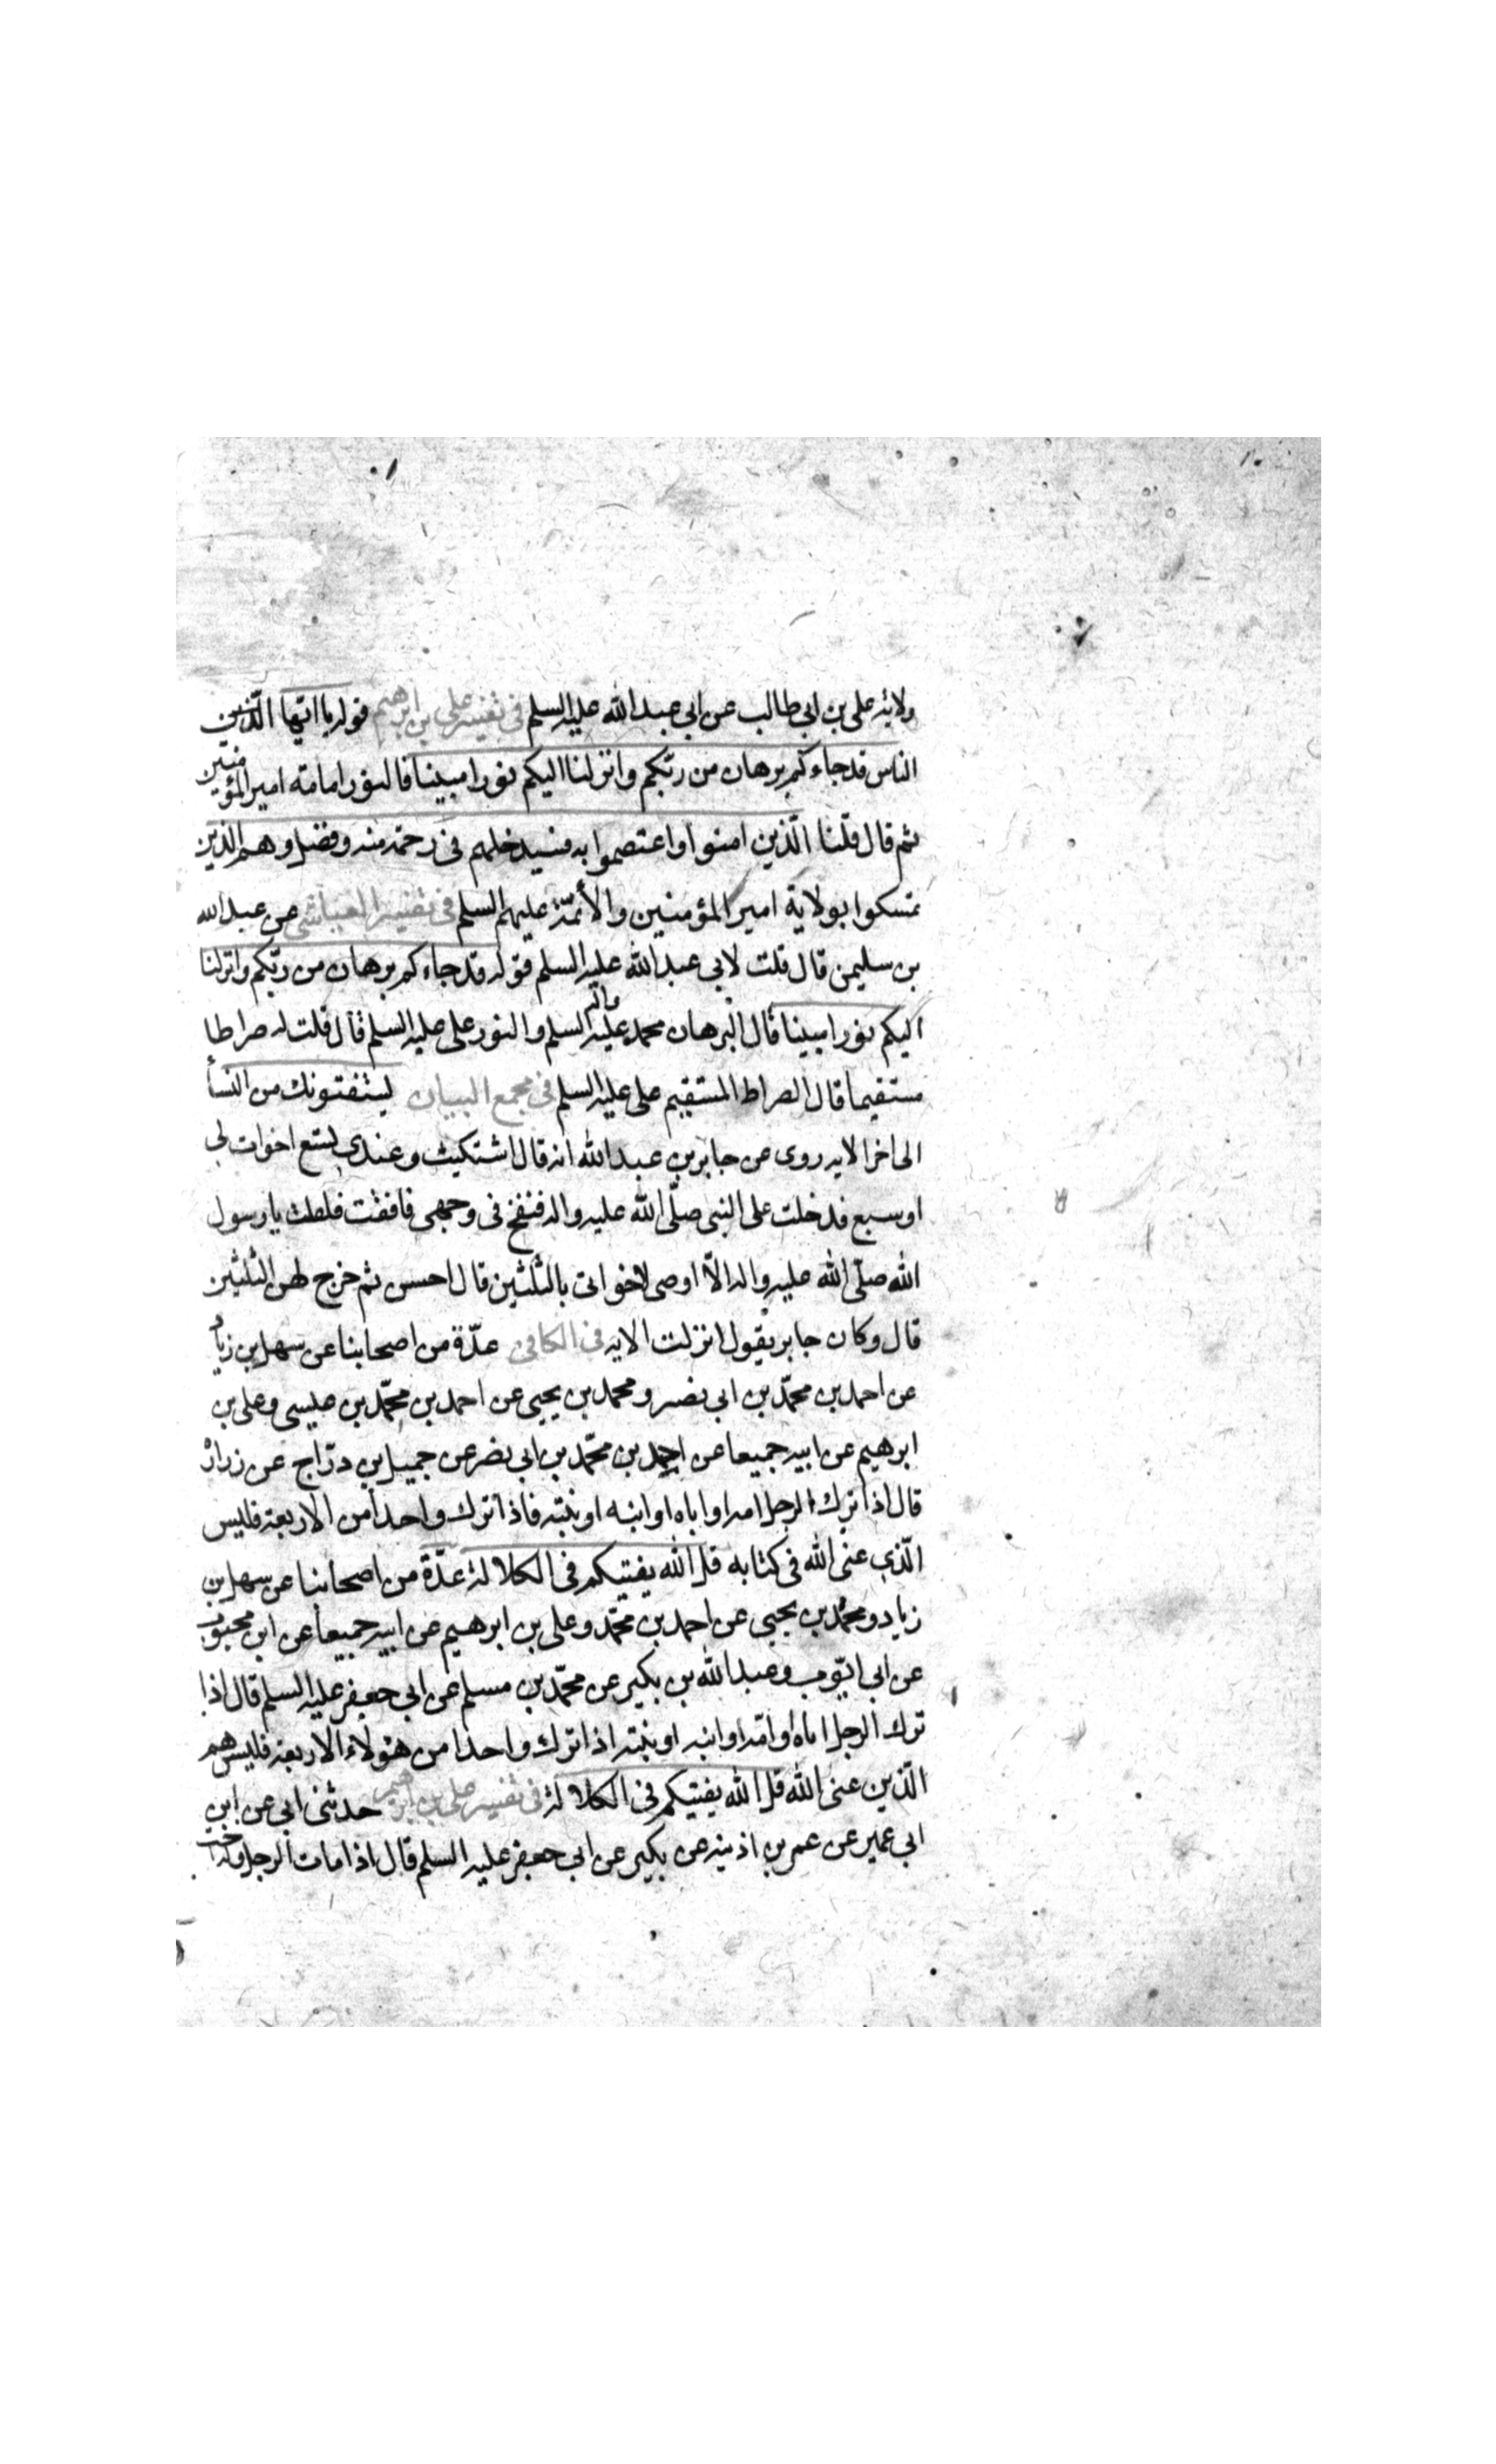 ولاية علی بن ابی طالب عن ابی عبد الله علیه السلم فی تفسیر علی بن ابرهیم قوله یا ایّها الّذین
الناس قد جاءکم برهان من ربّکم وانزلنا الیکم نورا مبینا فالنور امامة امیر المؤمنین
ثم قال فلنا الّذین امنوا واعتصموا به فسیدخلهم فی رحمة منه وفضل وهم الذین
تمسکوا بولایة امیر المؤمنین والأئمّة علیهم السلم فی تفسیر العیاشی عن عبد الله
بن سلیمن قال قلت لابی عبد الله علیه السلم قوله قد جاءکم برهان من ربّکم وانزلنا
الیکم نورا مبینا قال البرهان محمد علیه واله السلم والنور علی علیه السلم قال قلت له صراطا
مستقیما قال الصراط المستقیم علی علیه السلم فی مجمع البیان یستفتونك من النسأ
الی اخر الایه روی عن جابر بن عبد الله انه قال اشتکیت وعندی تسع اخوات لی
او سبع فدخلت علی النبی صلّی الله علیه واله فنفخ فی وجهی فافقت فقلت یا رسول
الله صلّی الله علیه واله الاّ اوصی لاخواتی بالثلثین قال احسن ثم خرج لهن الثلثین
قال وکان جابر یقول انزلت الایه فی الکافی عدّة من اصحابنا عن سهل بن زیاد
عن احمد بن محمّد بن ابی نصر ومحمد بن یحیی عن احمد بن محمّد بن عیسی وعلی بن
ابرهیم عن ابیه جمیعا عن احمد بن محمّد بن ابی نصر عن جمیل بن درّاج عن زرارة
قال اذا ترك الرجل امه او اباه او ابنه او بنته فاذا ترك واحدا من الاربعة فلیس
الّذی عنی الله فی کتابه قل الله یفتیکم فی الکلالة عدّة من اصحابنا عن سهل بن
زیاد ومحمّد بن یحیی عن احمد بن محمّد وعلی بن ابرهیم عن ابیه جمیعا عن ابن محبوب
عن ابی ایّوب وعبد الله بن بکیر عن محمّد بن مسلم عن ابی جعفر علیه السلم قال اذا
ترك الرجل اباه او امّه او ابنه او بنته اذا ترك واحدا من هؤلاء الاربعة فلیس هم
الّذین عنی الله قل الله یفتیکم فی الکلالة فی تفسیر علی بن ابرهیم حدثنی ابی عن ابن
ابی عمیر عن عمر بن اذینه عن بکیر عن ابی جعفر علیه السلم قال اذا مات الرجل وله اخت